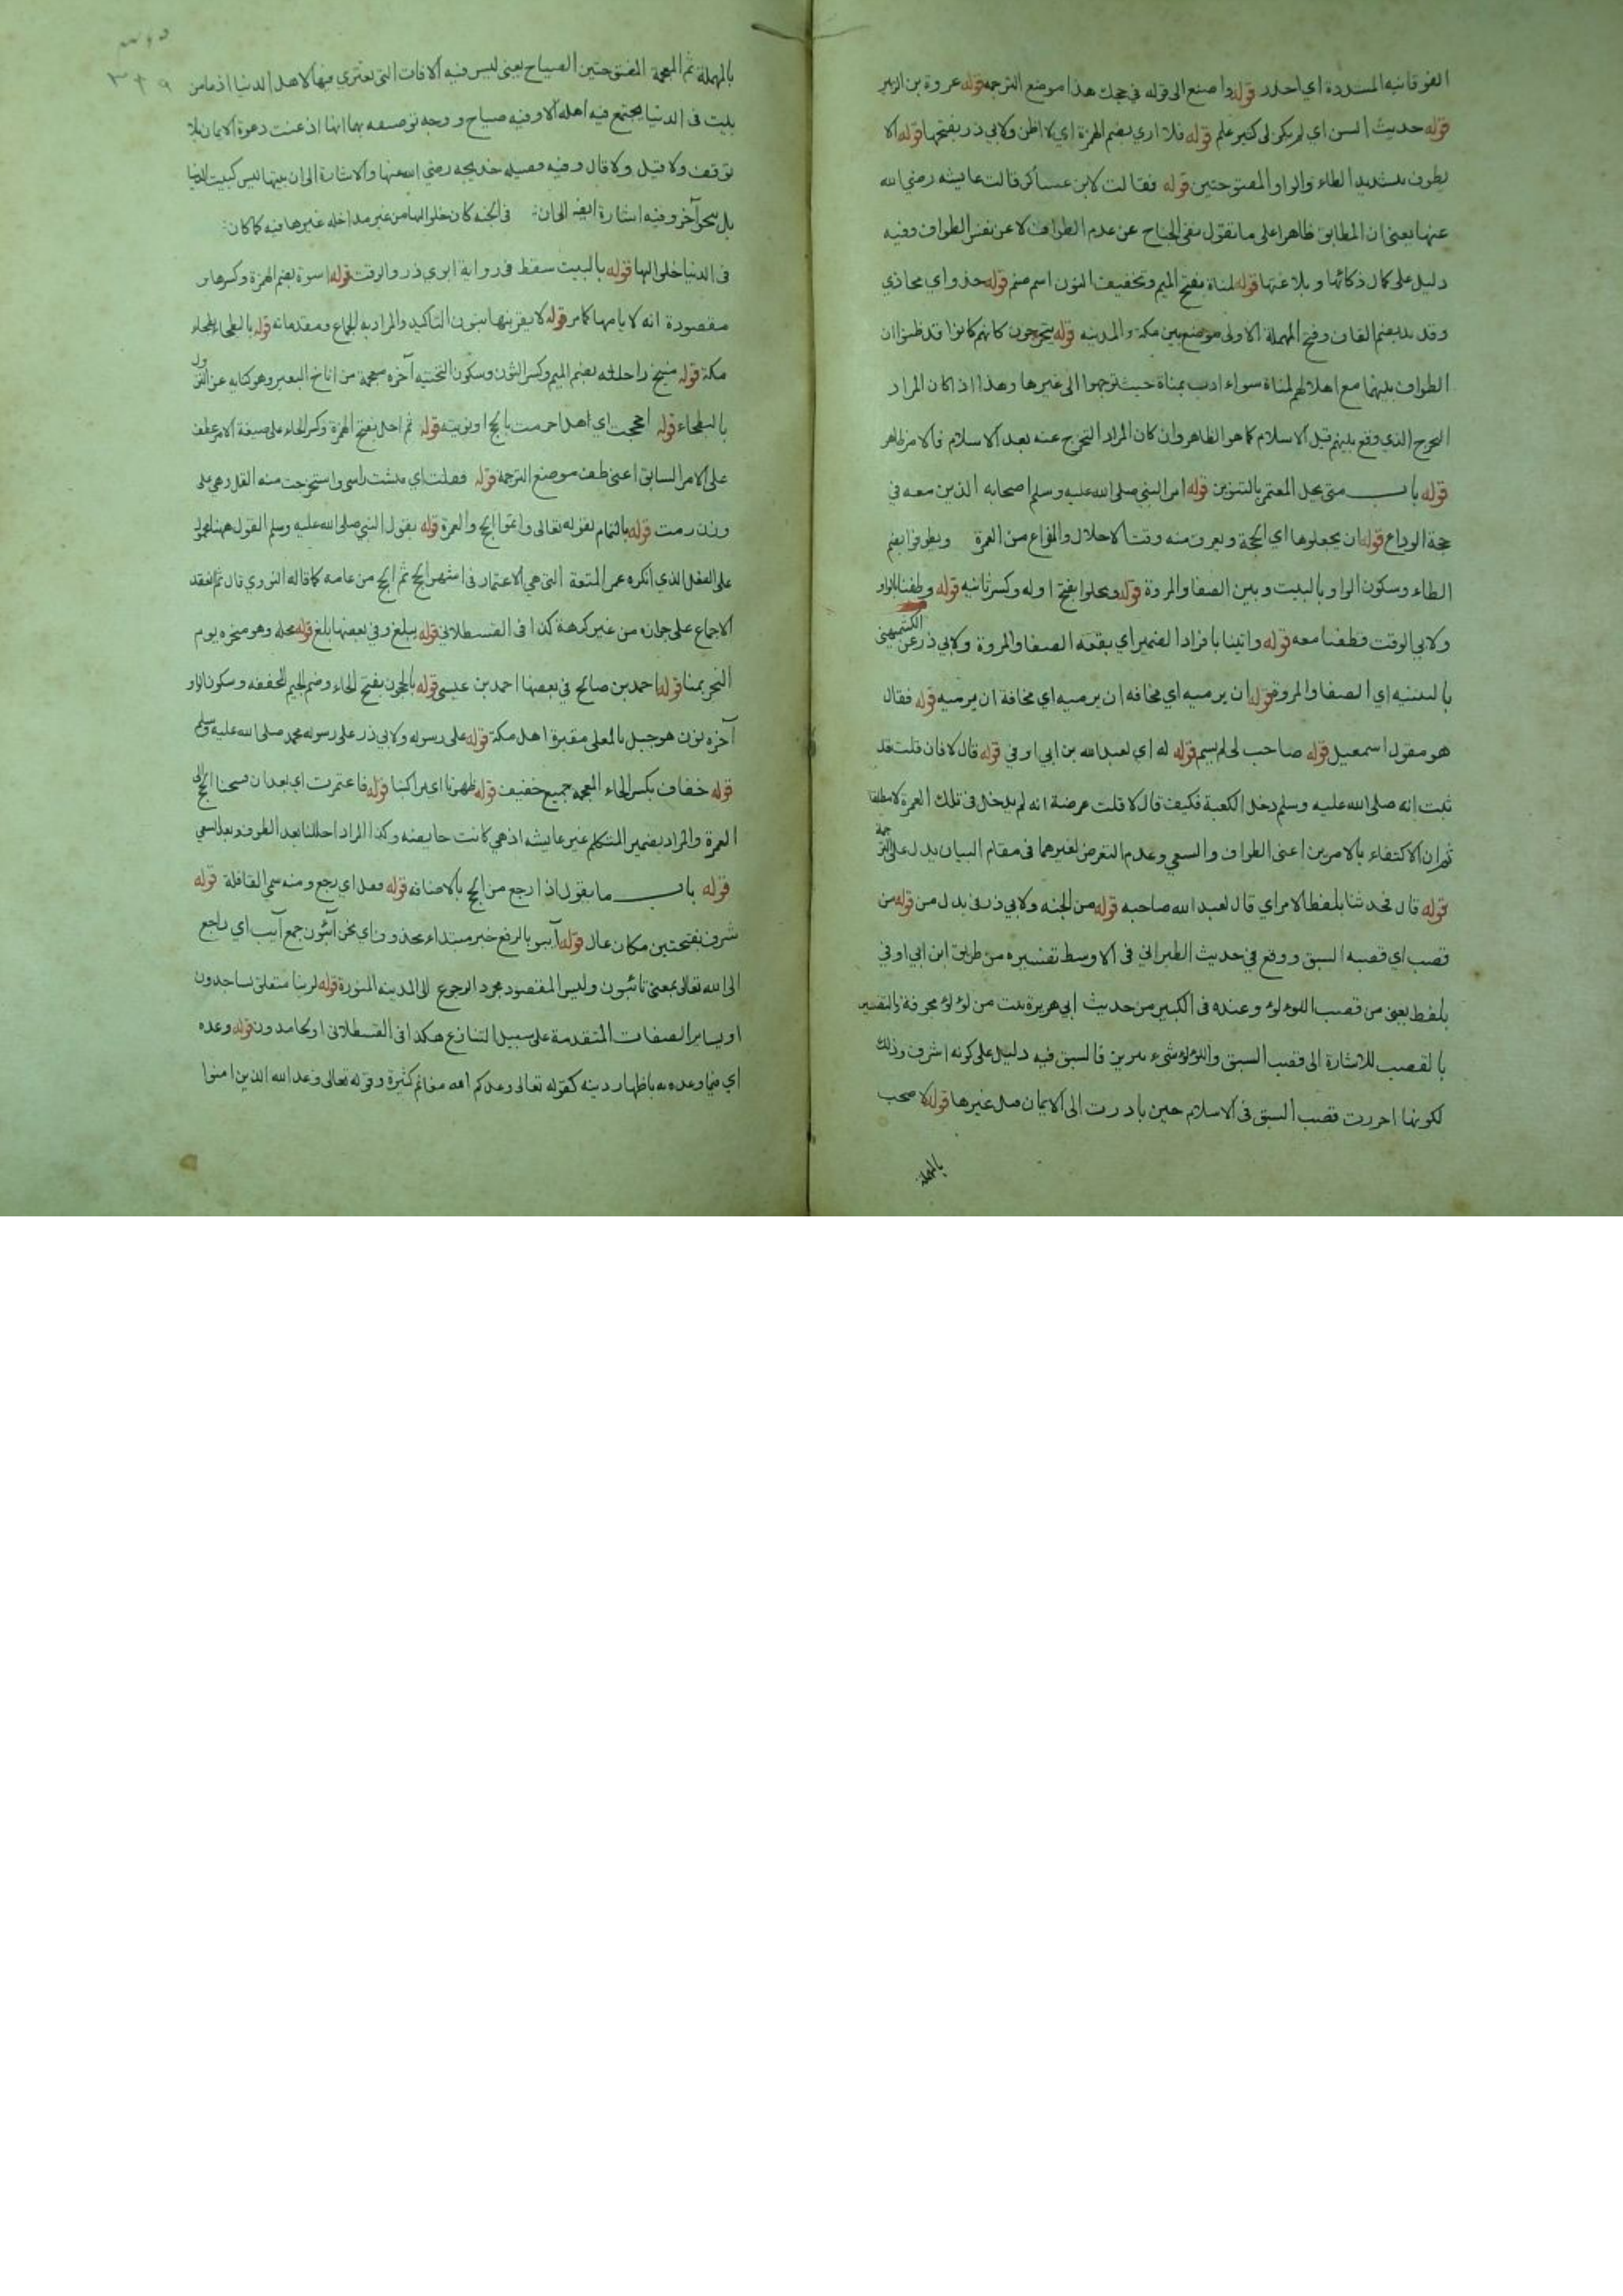 الفوقانيه المشددة اي احذر قوله واصنع الى قوله في حجك هذا موضع الترجمه قوله عروة بن الزبير
قوله حديث السن اي لم يكن لى كثير علم قوله فلا اري بضم الهمزة اي لا اظن ولابي ذر بفتحها قوله الا
يطوف بتشديد الطاء والواو المفتوحتين قوله فقالت لابن عساكر قالت عايشه رضي الله
عنها يعنى ان المطابق ظاهرا على ما تقول نفى الجناح عن عدم الطواف لا عن نفس الطواف وفيه
دليل على كمال ذكائها وبلاغتها قوله لمناة بفتح الميم وتخفيف النون اسم صنم قوله حذو اي محاذي
وقديد بضم القاف وفتح المهملة الاولى موضع بين مكة والمدينه قوله يتحرجون كانهم كانوا قد ظنوا ان
الطواف بينهما مع اهلالهم لمناة سواء ادب بمناة حيث توجهوا الى غيرها وهذا اذا كان المراد
التحرج الذي وقع بينهم قبل الاسلام كما هو الظاهر وان كان المراد التحرج عنه بعد الاسلام فالامر ظاهر
قوله باب متى يحل المعتمر بالتنوين قوله امر النبي صلى الله عليه وسلم اصحابه الذين معه في
حجة الوداع قوله ان يجعلوها اي الحجة ويعرف منه وقت الاحلال والفراغ من العمرة ويطوفوا بضم
الطاء وسكون الواو بالبيت وبين الصفا والمروة قوله ويحلوا بفتح اوله وكسر ثانيه قوله وطفنا بالواو
ولابي الوقت فطفنا معه قوله واتينا بافراد الضمير اي بقعة الصفا والمروة ولابي ذر عن الكشميهنى
بالتثنيه اي الصفا والمروة قوله ان يرميه اي مخافه ان يرميه اي مخافة ان يرميه قوله فقال
هو مقول اسمعيل قوله صاحب لى لم يسم قوله له اي لعبد الله بن ابي اوفي قوله قال لا فان قلت قد
ثبت انه صلى الله عليه وسلم دخل الكعبة فكيف قال لا قلت غرضة انه لم يدخل فى تلك العمرة لا مطلقا
ثم ان الاكتفاء بالامرين اعنى الطواف والسعي وعدم التعرض لغيرهما فى مقام البيان يدل على الترجمة
قوله قال فحدثنا بلفظ الامر اي قال لعبد الله صاحبه قوله من الجنه ولابي ذر فى بدل من قوله من
قصب اي قصبه السبق ووقع في حديث الطبراني فى الاوسط تفسيره من طريق ابن ابي اوفي
بلفظ يعني من قصب اللولوء وعنده فى الكبير من حديث ابي هريرة بيت من لؤلؤ مجوفة والتقسير
بالقصب للاشارة الى قصب السبق واللولوء شيء فالسبق فيه دليل على كونه اشرف وذلك
لكونها احررت قصب السبق فى الاسلام حين بادرت الى الايمان غيرها قوله لا صخب
بالمهملة
٣٢٩
بالمهملة ثم المعجمة المفتوحتين الصياح يعنى ليس فيه الافات التى تعتري فيها لاهل الدنيا اذ ما من
بيت فى الدنيا يجتمع فيه اهله الا وفيه صياح ووجه توصيفه بها انها اذعنت دعوة الايمان بلا
توقف ولا قيل ولا قال وفيه فضيله خديجه رضي الله عنها والاشارة الى ان بيتها ليس كبيت الدنيا
بل بنحو آخر وفيه اشارة ايضه الى ان فى الجنه كان خلوا لها من غير مداخله غيرها فيه كما كان
فى الدنيا خلى لها قوله بالبيت سقط فى رواية ابوي ذر والوقت قوله اسوة بضم الهمزة وكسرها
مقصودة انه لا يامها كامر قوله لا يقربنها بنون التاكيد والمراد به الجماع ومقدماته قوله بالبطحاء بطحاء
مكة قوله منيخ راحلته بضم الميم وكسر النون وسكون التحتيه آخره معجمة من اناخ البعير وهو كنايه عن النزول
بالبطحاء قوله احججت اي اهل احرمت بالحج او نويته قوله ثم احل بفتح الهمزة وكسر الحاء على صيغة الامر عطف
على الامر السابق اعنى طف موضع الترجمة قوله ففلت اي فتشت راسى واستخرجت منه القل وهى على
وزن رمت قوله بالتمام لقوله تعالى واتموا الحج والعمرة قوله بقول النبي صلى الله عليه وسلم القول ههنا
على الفعل الذي انكره عمر المتعة التى هي الاعتمار فى اشهر الحج ثم الحج من عامه كما قاله النووي قال ثم انعقد
الاجماع على جوازه من غير كرهة كذا فى القسطلاني قوله يبلغ وفي بعضها بلغ قوله محله وهو منحره يوم
النحر بمنا قوله احمد بن صالح في بعضها احمد بن عيسى قوله بالحجون بفتح الحاء وضم الجيم المخففه وسكون الواو
آخره نون هو جبل بالمعلى مقبرة اهل مكة قوله على رسوله ولابي ذر على رسوله محمد صلى الله عليه وسلم
قوله خفاف بكسر الخاء المعجمه جميع خفيف قوله ظهرنا اي مراكبنا قوله فاعتمرت اي بعد ان فسخنا الحج الى
العمرة والمراد بضمير المتكلم غير عايشه اذ هي كانت حايضه وكذا المراد احللنا بعد الطوف وبعد السعى
قوله باب ما يقول اذا رجع من الحج بالاضافه قوله قفل اي رجع ومنه سمي القافلة قوله
شرف بفتحتين مكان عال قوله آيبو بالرفع خبر مبتداء محذوف اي نحن آئبون جمع آيب اي راجع
الى الله تعالى بمعنى تائبون وليس المقصود مجرد الرجوع الى المدينه المنورة قوله لربنا متعلق بساجدون
او بساير الصفات المتقدمة على سبيل التنازع هكذا فى القسطلانى او لحامدون قوله وعده
اي فيما وعده به باظهار دينه كقوله تعالى وعدكم الله مغانم كثيرة وقوله تعالى وعد الله الذين امنوا